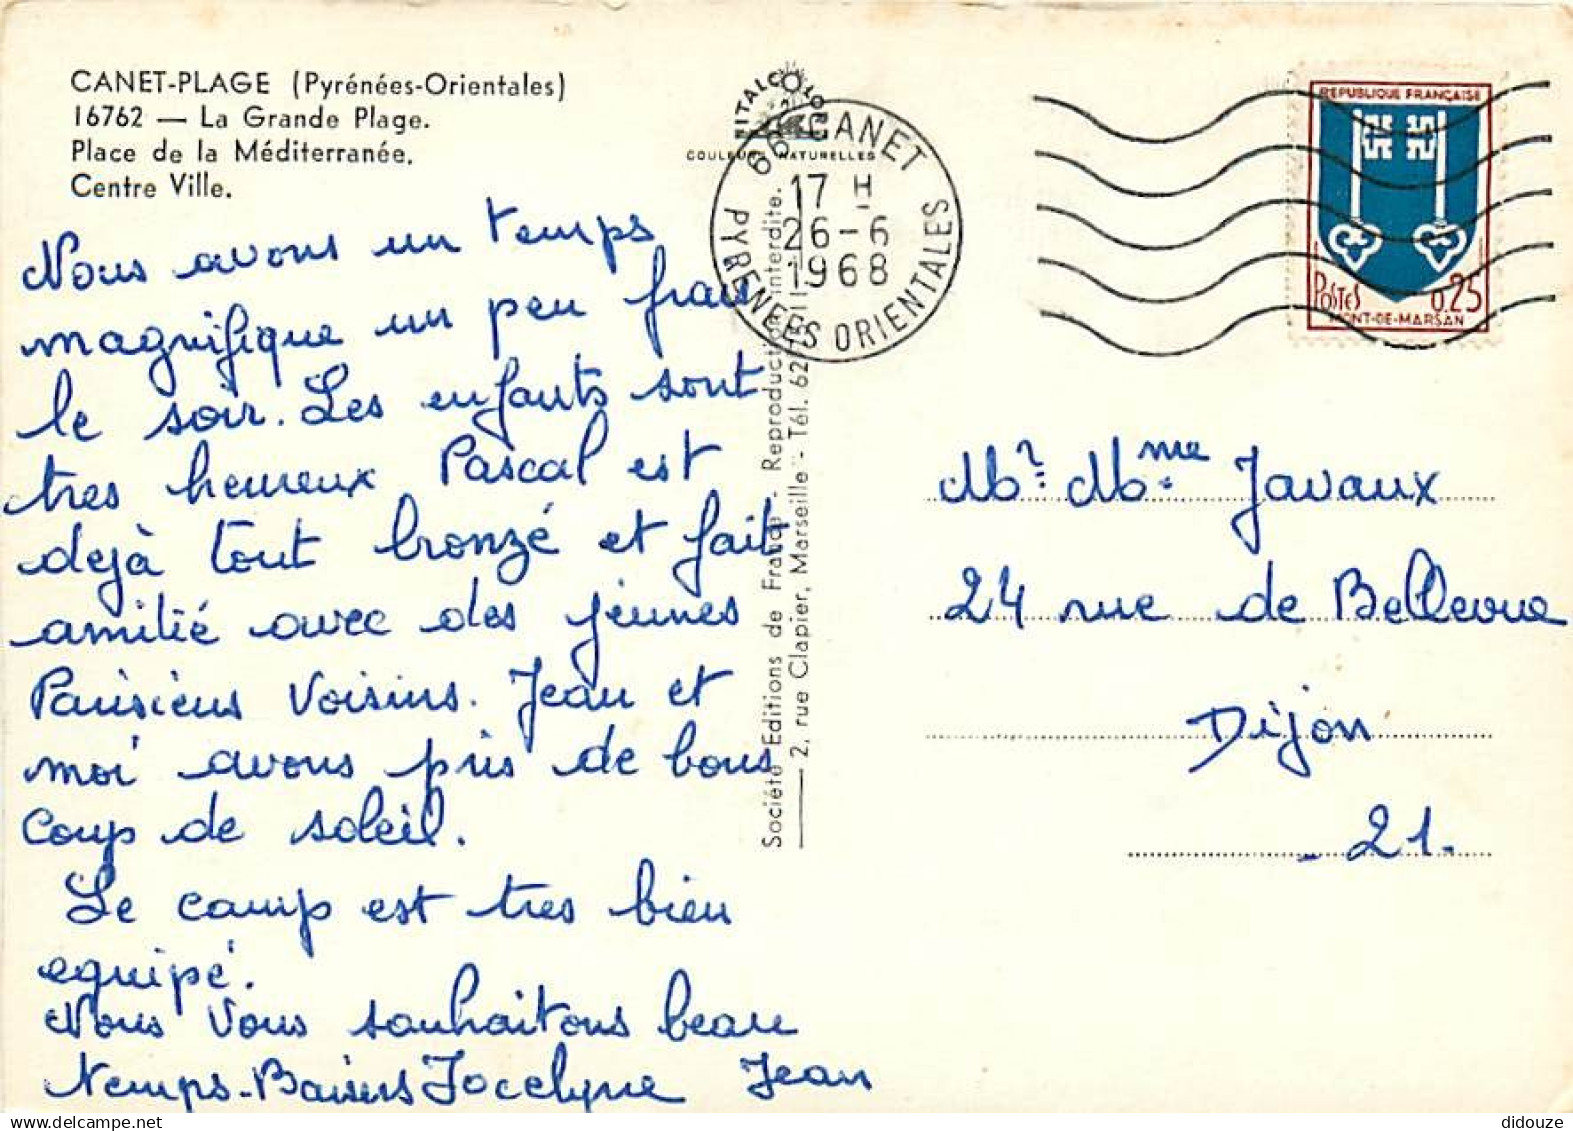 CANET-PLAGE (Pyrénées-Orientales)
16762 — La Grande Plage.
Place de la Méditerranée.
Centre Ville.
COULEURS NATURELLES
66 CANET
17 H
26-6
1968
PYRENEES ORIENTALES
REPUBLIQUE FRANÇAISE
POSTES
0,25
MONT-DE-MARSAN
Nous avons un temps
magnifique un peu frais
le soir. Les enfants sont
tres heureux Pascal est
dejà tout bronzé et fait
amitié avec des jeunes
Parisiens Voisins. Jean et
moi avons pris de bons
Coup de soleil.
Le camp est tres bien
equipé.
Nous Vous souhaitons beau
temps. Baisers Jocelyne Jean
Société Editions de France - Reproduction interdite.
2, rue Clapier, Marseille - Tél. 62
Mr. Mme Javaux
24 rue de Bellevue
Dijon
- 21.
didouze